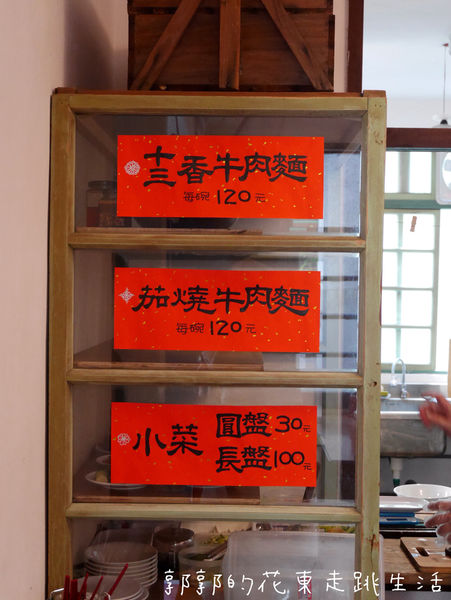 十三香牛肉麵
每碗120元
茄燒牛肉麵
每碗120元
小菜 圓盤30元
長盤100元
郭郭的花東走跳生活